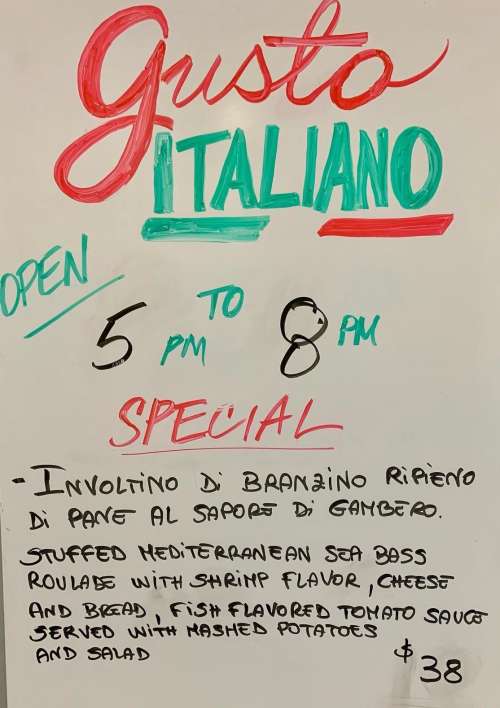 Gusto
ITALIANO
OPEN
5 PM TO 8 PM
SPECIAL
- INVOLTINO Di BRANZINO RIPIENO
Di PANE AL SAPORE Di GAMBERO.
STUFFED MEDITERRANEAN SEA BASS
ROULADE WITH SHRIMP FLAVOR, CHEESE
AND BREAD, FISH FLAVORED TOMATO SAUCE
SERVED WITH MASHED POTATOES
AND SALAD
$ 38